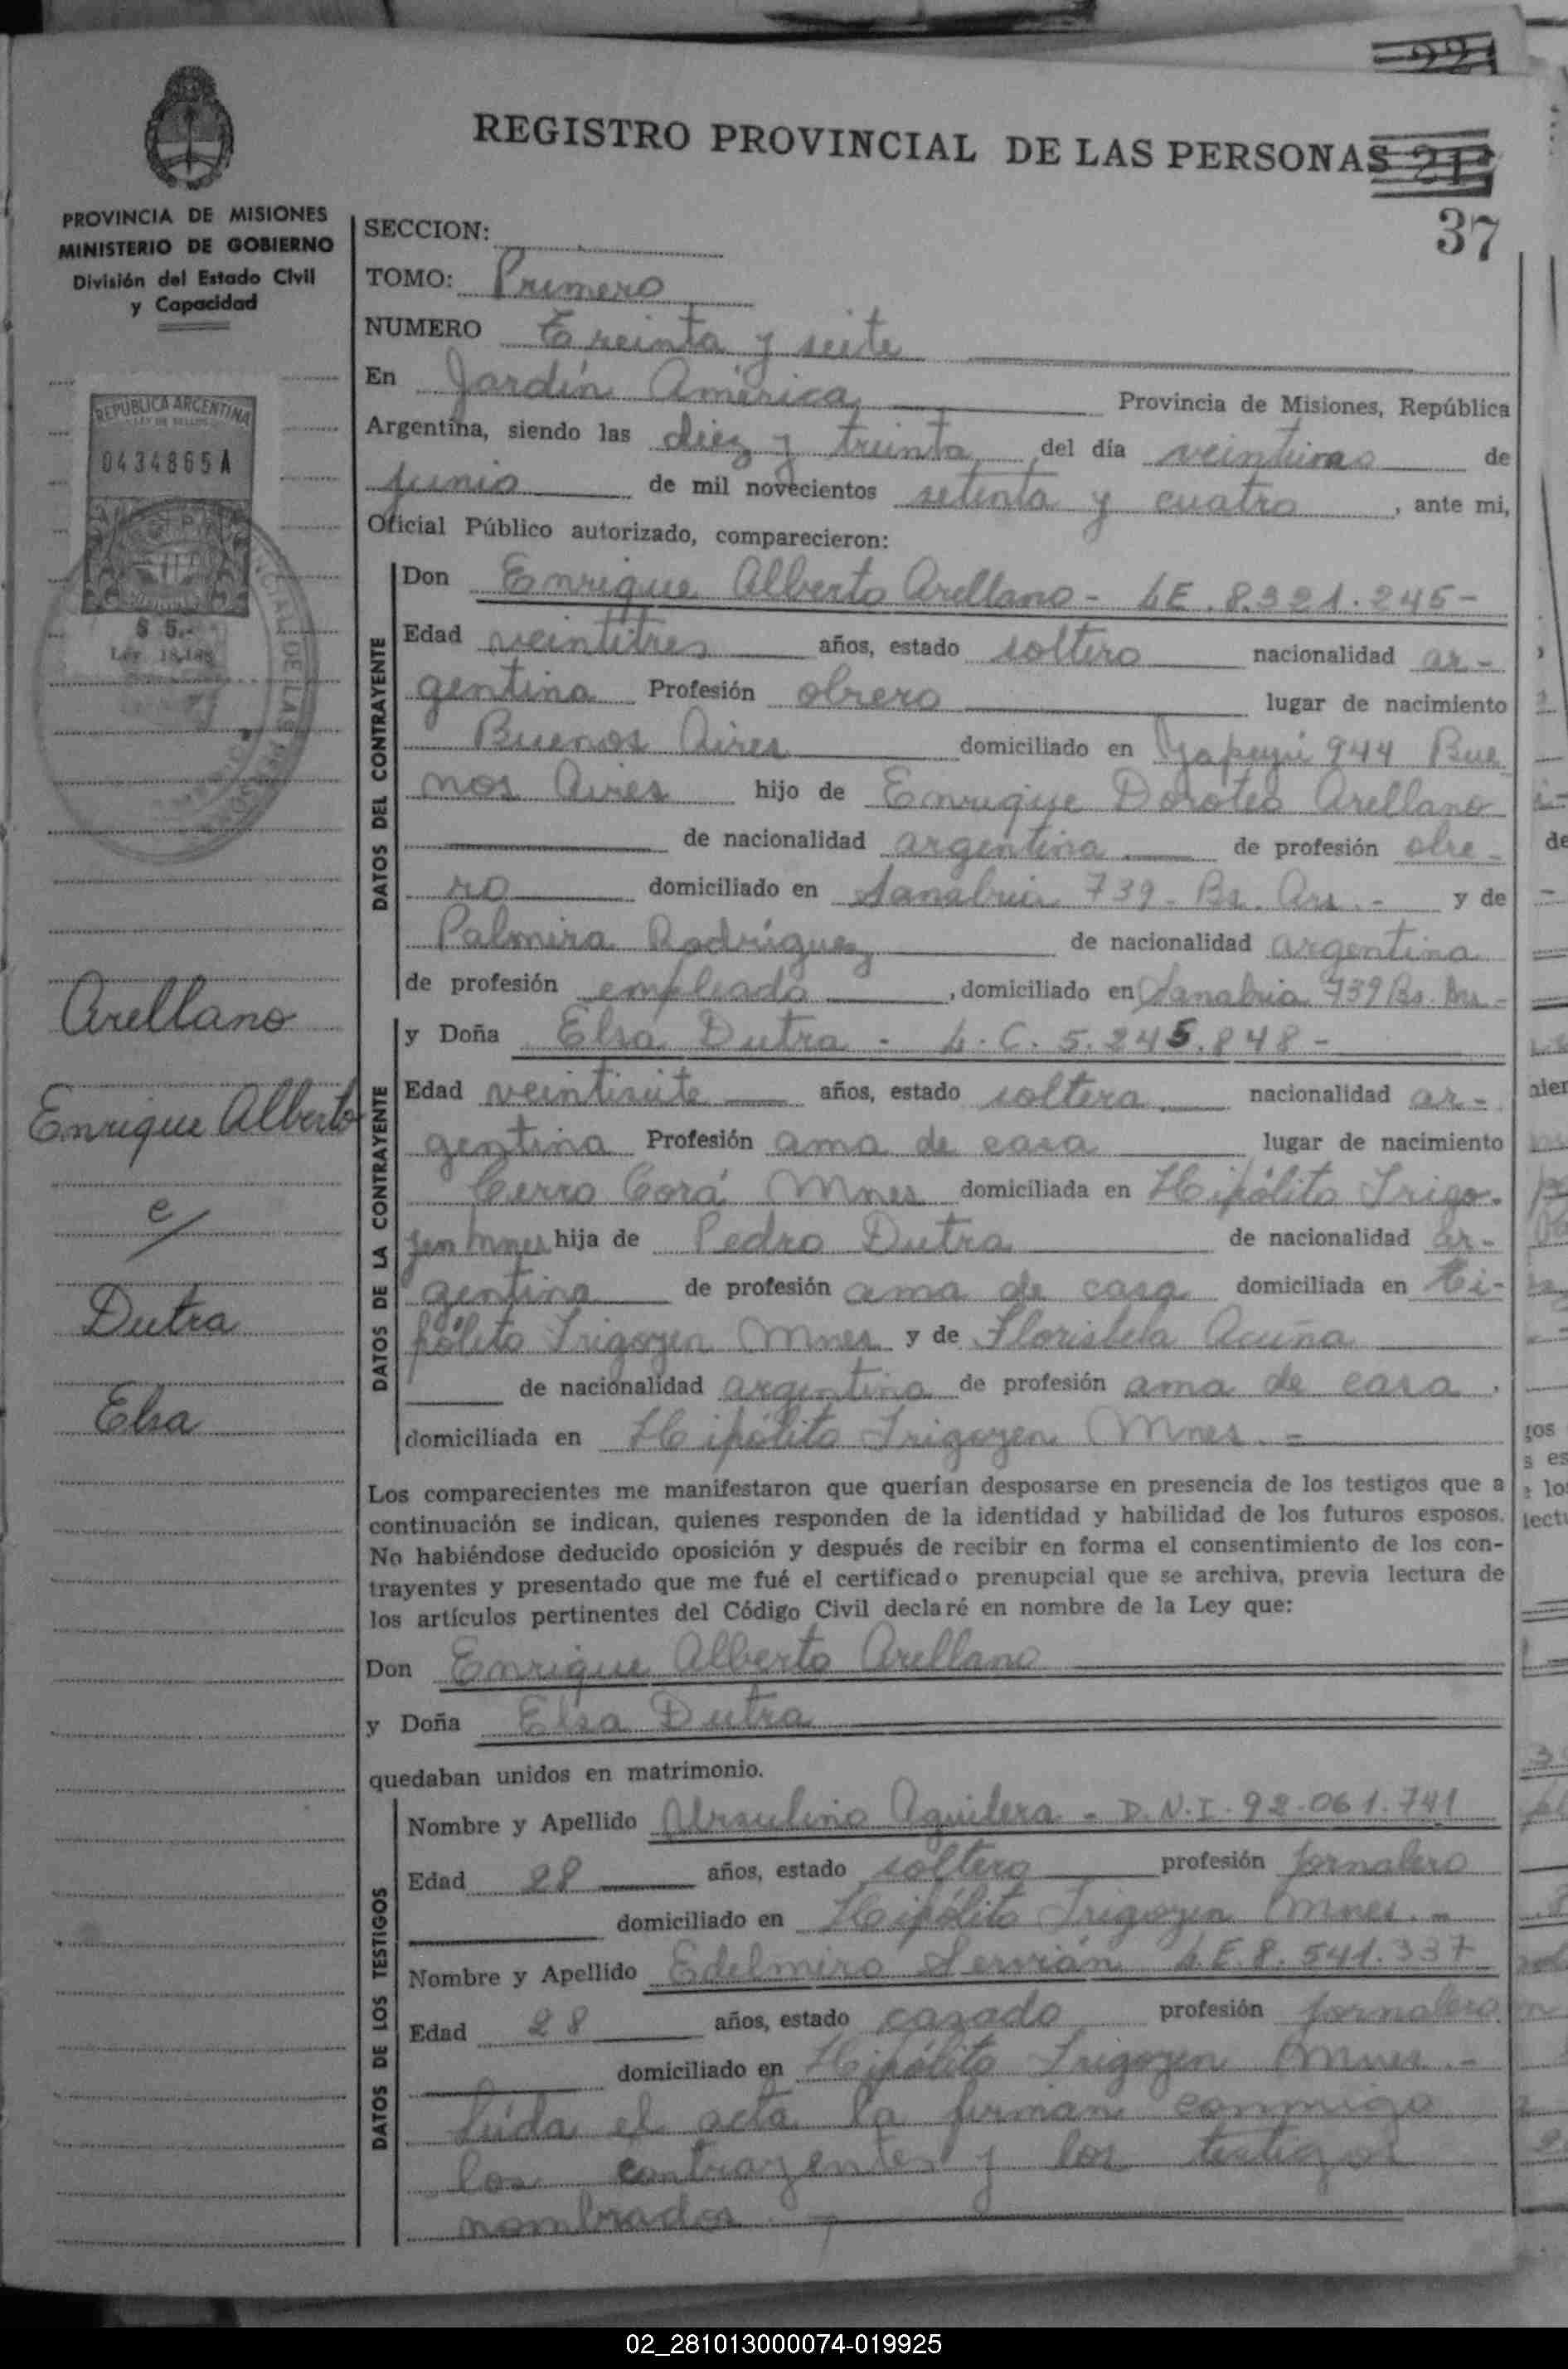 221
REGISTRO PROVINCIAL DE LAS PERSONAS
37
PROVINCIA DE MISIONES
MINISTERIO DE GOBIERNO
División del Estado Civil
y Capacidad
REPUBLICA ARGENTINA
LEY DE SELLOS
0434865A
$ 5.-
Ley 18.188
SECCION:
TOMO: Primero
NUMERO Treinta y seite
En Jardín América Provincia de Misiones, República
Argentina, siendo las diez y treinta del día veintiuno de
junio de mil novecientos setenta y cuatro, ante mi,
Oficial Público autorizado, comparecieron:
DATOS DEL CONTRAYENTE
Don Enrique Alberto Arellano - LE. 8.321.245 -
Edad veintitres años, estado soltero nacionalidad ar-
gentina Profesión obrero lugar de nacimiento
Buenos Aires domiciliado en Yapeyú 944 Bue
nos Aires hijo de Enrique Doroteo Arellano
de nacionalidad argentina de profesión obre-
ro domiciliado en Sanabria 739 - Bs. Ars. - y de
Palmira Rodríguez de nacionalidad argentina
de profesión empleada, domiciliado en Sanabria 739 Bs. Ars -
DATOS DE LA CONTRAYENTE
y Doña Elsa Dutra - L.C. 5.245.848 -
Edad veintisiite años, estado soltera nacionalidad ar-
gentina Profesión ama de casa lugar de nacimiento
Cerro Corá Mnes domiciliada en Hipólito Irigo-
yen Mnes hija de Pedro Dutra de nacionalidad ar-
gentina de profesión ama de casa domiciliada en Hi-
pólito Irigoyen Mnes y de Floristela Acuña
de nacionalidad argentina de profesión ama de casa,
domiciliada en Hipólito Irigoyen Mnes. =
Arellano
Enrique Alberto
c/
Dutra
Elsa
Los comparecientes me manifestaron que querían desposarse en presencia de los testigos que a
continuación se indican, quienes responden de la identidad y habilidad de los futuros esposos.
No habiéndose deducido oposición y después de recibir en forma el consentimiento de los con-
trayentes y presentado que me fué el certificado prenupcial que se archiva, previa lectura de
los artículos pertinentes del Código Civil declaré en nombre de la Ley que:
Don Enrique Alberto Arellano
y Doña Elsa Dutra
quedaban unidos en matrimonio.
DATOS DE LOS TESTIGOS
Nombre y Apellido Ursulino Aguilera - D.N.I. 92.061.741
Edad 28 años, estado soltero profesión jornalero
domiciliado en Hipólito Irigoyen Mnes. -
Nombre y Apellido Edelmiro Servián L.E. 8.541.337
Edad 28 años, estado casado profesión jornalero
domiciliado en Hipólito Irigoyen Mnes. -
Leída el acta la firman conmigo
los contrayentes y los testigos
nombrados
02_281013000074-019925